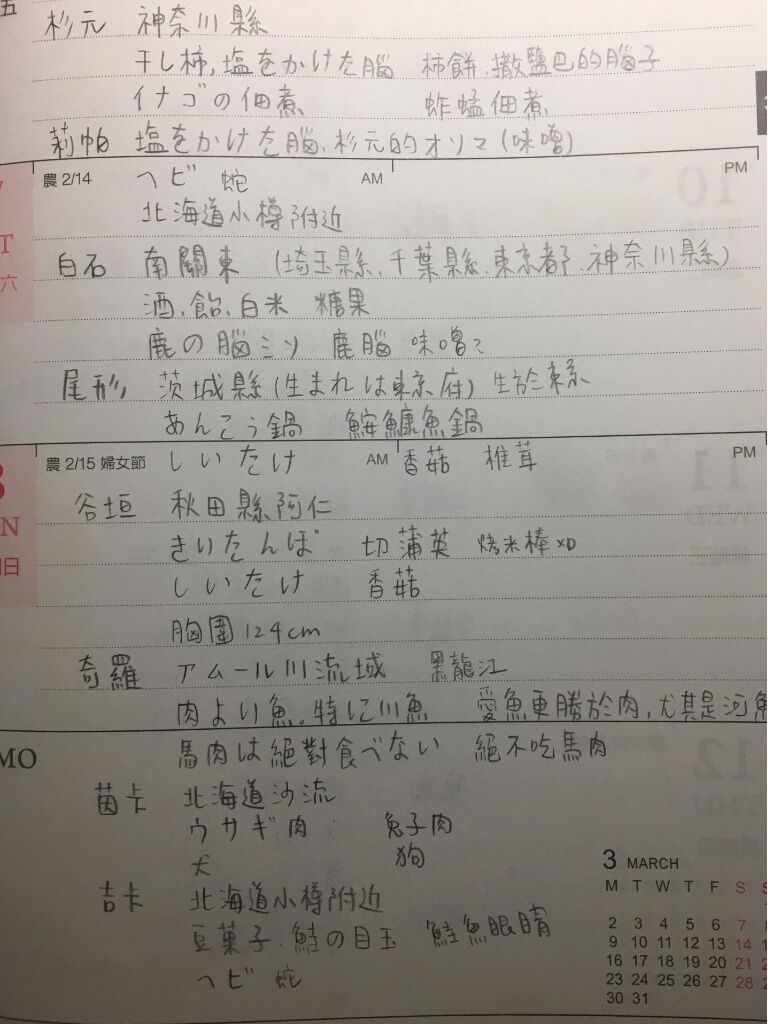 五
杉元 神奈川縣
干し柿,塩をかけた腦 柿餅、撒鹽巴的腦子
イナゴの佃煮 蚱蜢佃煮
莉帕 塩をかけた腦、杉元的オソマ(味噌)
農 2/14 ヘビ 蛇 AM PM
北海道小樽附近
T 六
白石 南關東 (埼玉縣、千葉縣、東京都、神奈川縣)
酒、飴、白米 糖果
鹿の腦ミソ 鹿腦 味噌?
尾形 茨城縣(生まれは東京府) 生於東京
あんこう鍋 鮟鱇魚鍋
農 2/15 婦女節 しいたけ AM 香菇 椎茸 PM
N 日
谷垣 秋田縣阿仁
きいたんぽ 切蒲英 烤米棒XD
しいたけ 香菇
胸圍124cm
奇羅 アムール川流域 黑龍江
肉よい魚。特に川魚 愛魚更勝於肉,尤其是河魚
馬肉は絕對食べない 絕不吃馬肉
MO
茵卡 北海道沙流
ウサギ肉 兔子肉
犬 狗
吉卡 北海道小樽附近
豆菓子、鮭の目玉 鮭魚眼睛
ヘビ 蛇
3 MARCH
M T W T F S S
2 3 4 5 6 7 8
9 10 11 12 13 14
16 17 18 19 20 21
23 24 25 26 27 28
30 31